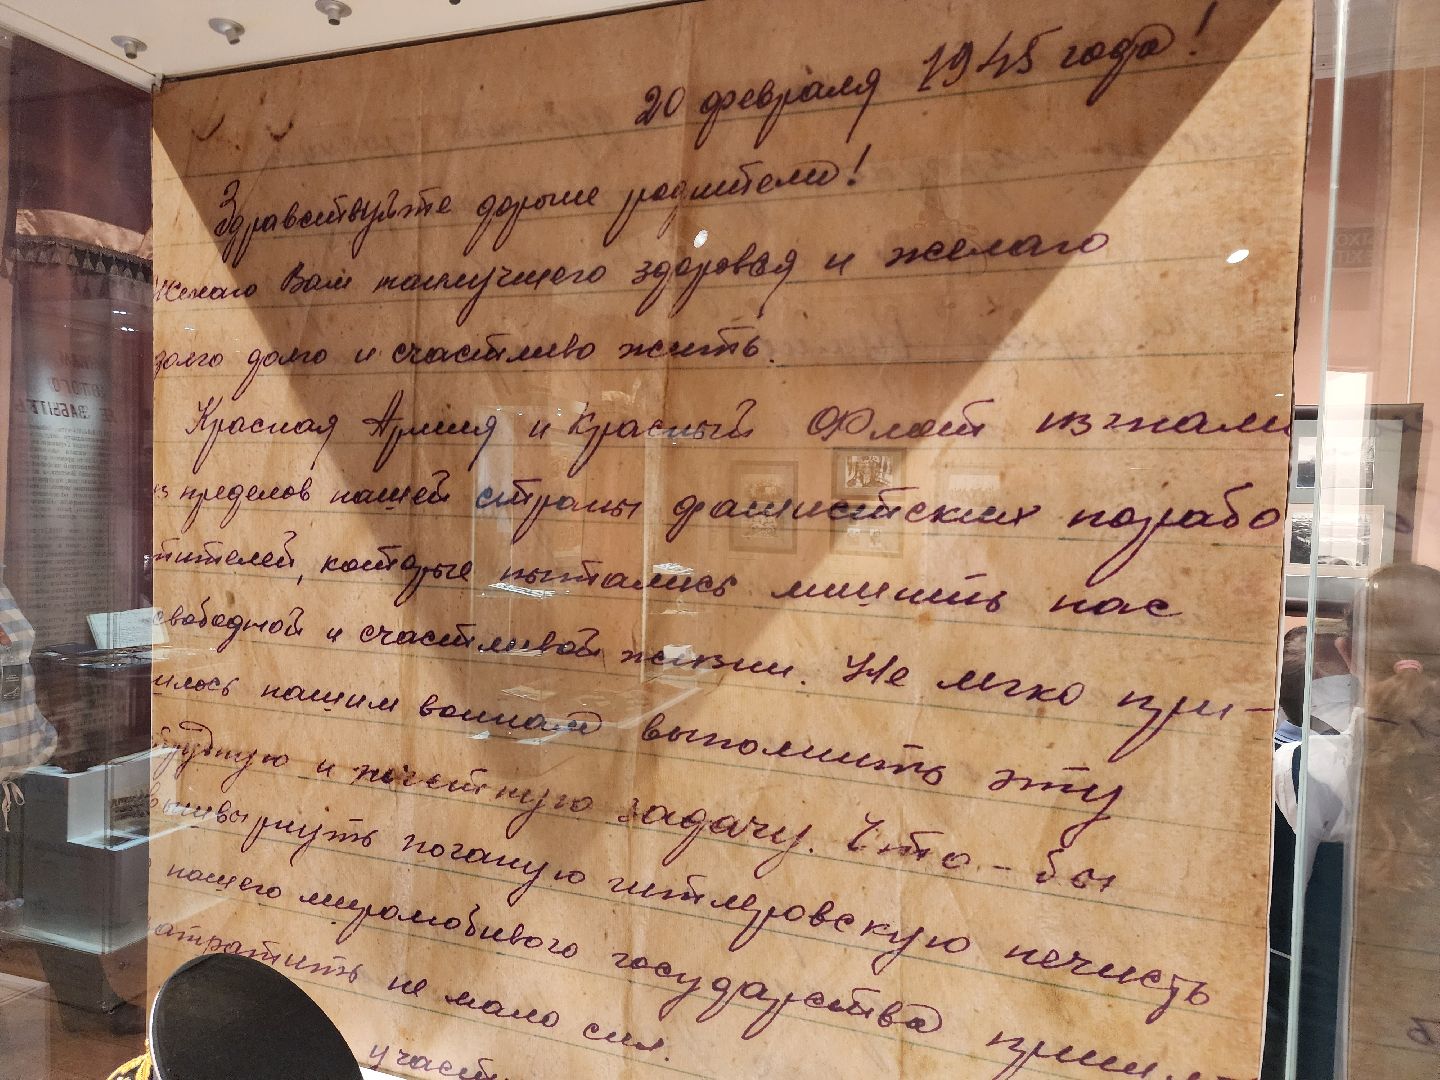 20 февраля 1945 года!
Здравствуйте дорогие родители!
Желаю Вам наилучшего здоровья и желаю
долго долго и счастливо жить.
Красная Армия и Красный Флот изгнали
из пределов нашей страны фашистских порабо
тителей, которые пытались лишить нас
свободной и счастливой жизни. Не легко при-
шлось нашим воинам выполнить эту
трудную и почетную задачу. Что-бы
вышвырнуть поганую гитлеровскую нечисть
нашего миролюбивого государства
затратить не мало сил.
ЗАБЫТЬ